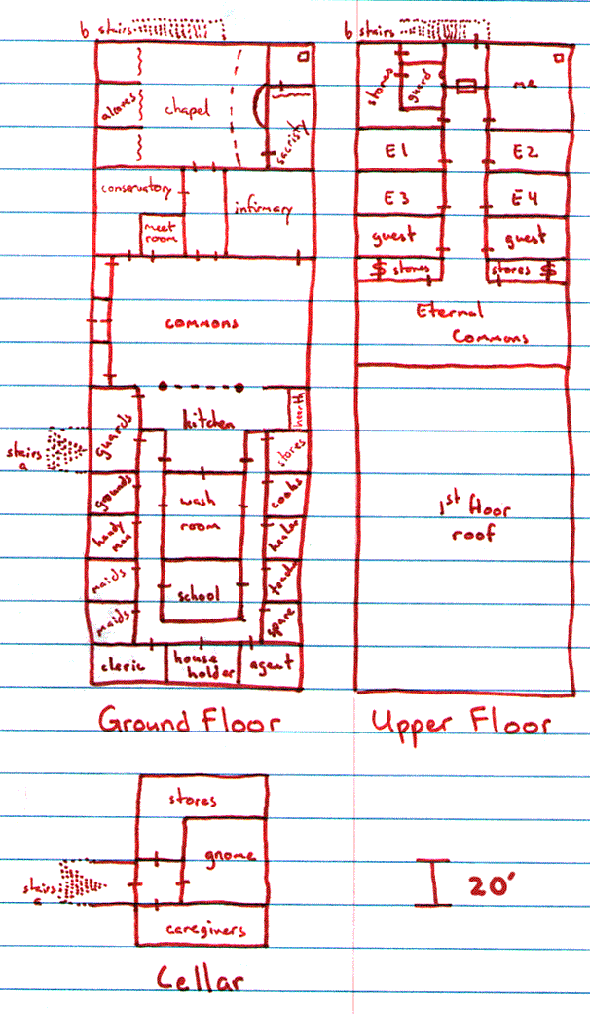 b stairs
chapel
alcoves
sacristy
conservatory
infirmary
meet
room
commons
kitchen
hearth
guards
stores
stairs
a
grounds
cooks
wash
room
handy
man
healer
maids
school
maids
spare
cleric
house
holder
agent
Ground Floor
b stairs
stores
guard
me
E1
E2
E3
E4
guest
guest
$ stores
stores $
Eternal
Commons
1st floor
roof
Upper Floor
stores
gnome
stairs
a
caregivers
Cellar
20'